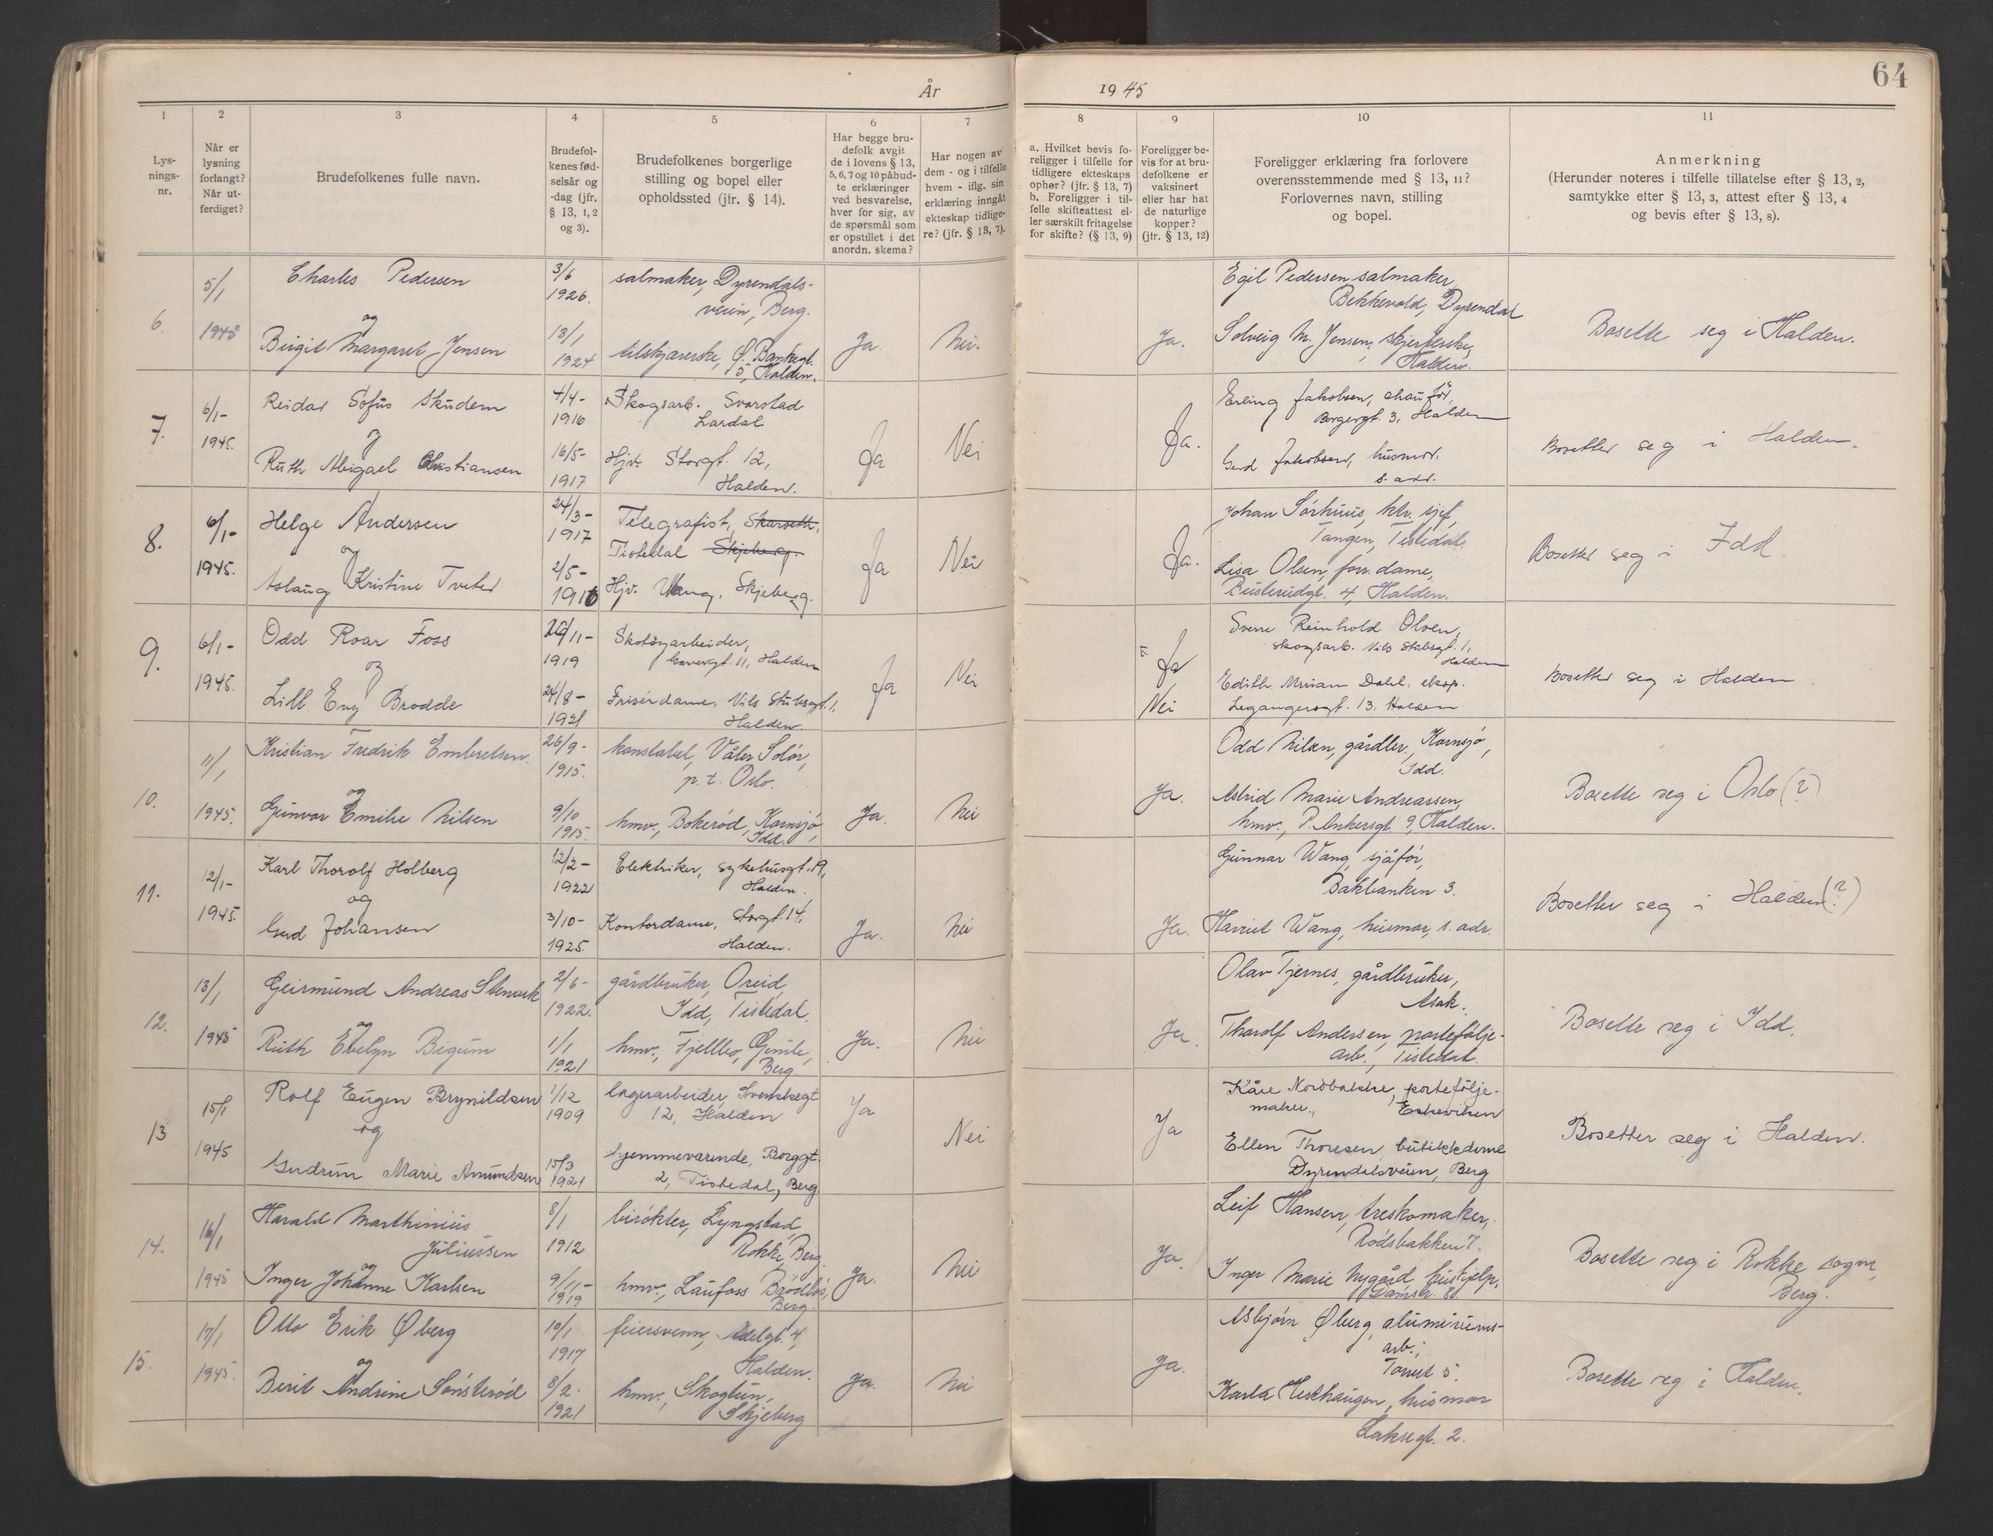 År
1945
64
1
2
3
4
5
6
7
8
9
10
11
Lys-
nings-
nr.
Når er
lysning
forlangt?
Når ut-
ferdiget?
Brudefolkenes fulle navn.
Brudefol-
kenes fød-
selsår og
-dag (jfr.
§ 13, 1, 2
og 3).
Brudefolkenes borgerlige
stilling og bopel eller
opholdssted (jfr. § 14).
Har begge bru-
defolk avgit
de i lovens § 13,
5, 6, 7 og 10 påbud-
te erklæringer
ved besvarelse,
hver for sig, av
de spørsmål som
er opstillet i det
anordn. skema?
Har nogen av
dem - og i tilfelle
hvem - iflg. sin
erklæring inngåt
ekteskap tidlige-
re? (jfr. § 13, 7).
a. Hvilket bevis fo-
religger i tilfelle for
tidligere ekteskaps
ophør? (jfr. § 13, 7)
b. Foreligger i til-
felle skifteattest el-
ler særskilt fritagelse
for skifte? (§ 13, 9)
Foreligger be-
vis for at bru-
defolkene er
vaksinert
eller har hat
de naturlige
kopper?
(jfr. § 13, 12)
Foreligger erklæring fra forlovere
overensstemmende med § 13, 11?
Forlovernes navn, stilling
og bopel.
Anmerkning
(Herunder noteres i tilfelle tillatelse efter § 13, 2,
samtykke efter § 13, 3, attest efter § 13, 4
og bevis efter § 13, 8).
6.
5/1
1945
Charles Pedersen
og
Birgit Margaret Jensen
3/6
1926.
13/1
1924
salmaker, Dyrendals-
veien, Berg.
tilskjærerske, Ø. Bankegt.
5, Halden.
Ja.
Nei.
Ja.
Egil Pedersen salmaker,
Bekkevold, Dyrendal
Solveig M. Jensen,
Halden.
Bosette seg i Halden.
7.
6/1-
1945.
Reidar Sofus Skudem
og
Ruth Abigael Christiansen
4/4-
1916
16/5-
1917
Skogsarb. Svarstad
Lardal
Hjv. Storgt 12,
Halden.
Ja
Nei
Ja.
Erling Jakobsen, chauför,
Borgergt. 3, Halden
Gerd Jakobsen, husmor.
s. adr.
Bosetter seg i Halden.
8.
6/1-
1945.
Helge Andersen
og
Aslaug Kristine Tveter
24/3-
1917
2/5-
1916
Telegrafist, Skarseth,
Tistedal Skjeberg.
Hjv. Vang, Skjeberg.
Ja
Nei
Ja.
Johan Sørhuus, ktr. sjef,
Tangen, Tistedal.
Lisa Olsen, forr. dame,
Busterudgt. 4, Halden.
Bosetter seg i Idd.
9.
6/1-
1945.
Odd Roar Foss
og
Lill Evy Brodde
26/11-
1919
24/8-
1921
Skotöyarbeider,
11, Halden
Frisérdame, Nils Stubsgt. 1,
Halden.
Ja
Nei
Ja
Nei
Sverre Reinhold Olsen,
Skogsarb. Nils Stubsgt. 1,
Halden
Edith Mirian Dahl, eksp.
Legangersgt. 13, Halden
Bosetter seg i Halden
10.
11/1
1945.
Kristian Fredrik Embretsen.
og
Gunvor Emilie Nilsen
26/9-
1915.
9/10
1915.
konstabel, Våler Solør,
p. t. Oslo.
hmv., Bokerød, Kornsjø,
Idd.
Ja.
Nei
Ja.
Odd Nilsen, gårdbr., Kornsjø,
Idd.
Astrid Marie Andreassen,
hmv., P. Ankersgt 9, Halden.
Bosette seg i Oslo (?)
11.
12/1-
1945.
Karl Thorolf Holberg
og
Gerd Johansen
12/2-
1922
3/10-
1925
Elektriker, Sykehusgt. 19,
Halden.
Kontordame, Storgt. 14,
Halden.
Ja.
Nei
Ja.
Gunnar Wang, sjåfør,
Bakbanken 3.
Harriet Wang, husmor, s. adr.
Bosetter seg i Halden (?)
12.
13/1
1945
Geirmund Andreas Stenerk
og
Ruth Evelyn Bigum
2/6-
1922.
1/1
1921
gårdbruker, Oreid,
Idd, Tistedal.
hmv., Fjellbo, Gimle,
Berg
Ja.
Nei
Ja.
Olav Tjernes, gårdbruker,
Asak.
Thorolf Andersen, portefølje-
arb., Tistedal.
Bosette seg i Idd.
13
15/1
1945
Rolf Eugen Brynildsen
og
Gudrun Marie Amundsen
1/12
1909
15/3
1921
lagerarbeider, Svenskegt
12, Halden
hjemmeværende, Borggt.
2, Tistedal, Berg.
Ja
Nei
Ja
Kåre Nordbakke, portefølje-
maker., Eskeviken
Ellen Thoresen, butikkdame
Dyrendalsveien, Berg
Bosetter seg i Halden.
14.
16/1
1945
Harald Marthinius
Juliussen
og
Inger Johanne Karlsen
8/1
1912
9/11-
1919
birøkter, Lyngstad,
Rokke, Berg.
hmv., Laufoss Brödløs,
Berg
Ja.
Nei
Ja.
Leif Hansen, treskomaker,
Rødsbakken 7.
Inger Marie Nygård, hushjelp,
Bosette seg i Rokke sogn,
Berg.
15.
17/1
1945.
Otto Erik Øberg
og
Berit Andrine Sønsterød
10/1
1917
8/2.
1921
feiersvenn, Adelgt. 4,
Halden.
hmv., Skogtun,
Skjeberg
Ja.
Nei
Ja.
Asbjørn Øberg, aluminiums-
arb.,
Torvet 5.
Karla Hesthaugen, husmor
Laksegt. 2.
Bosette seg i Halden.